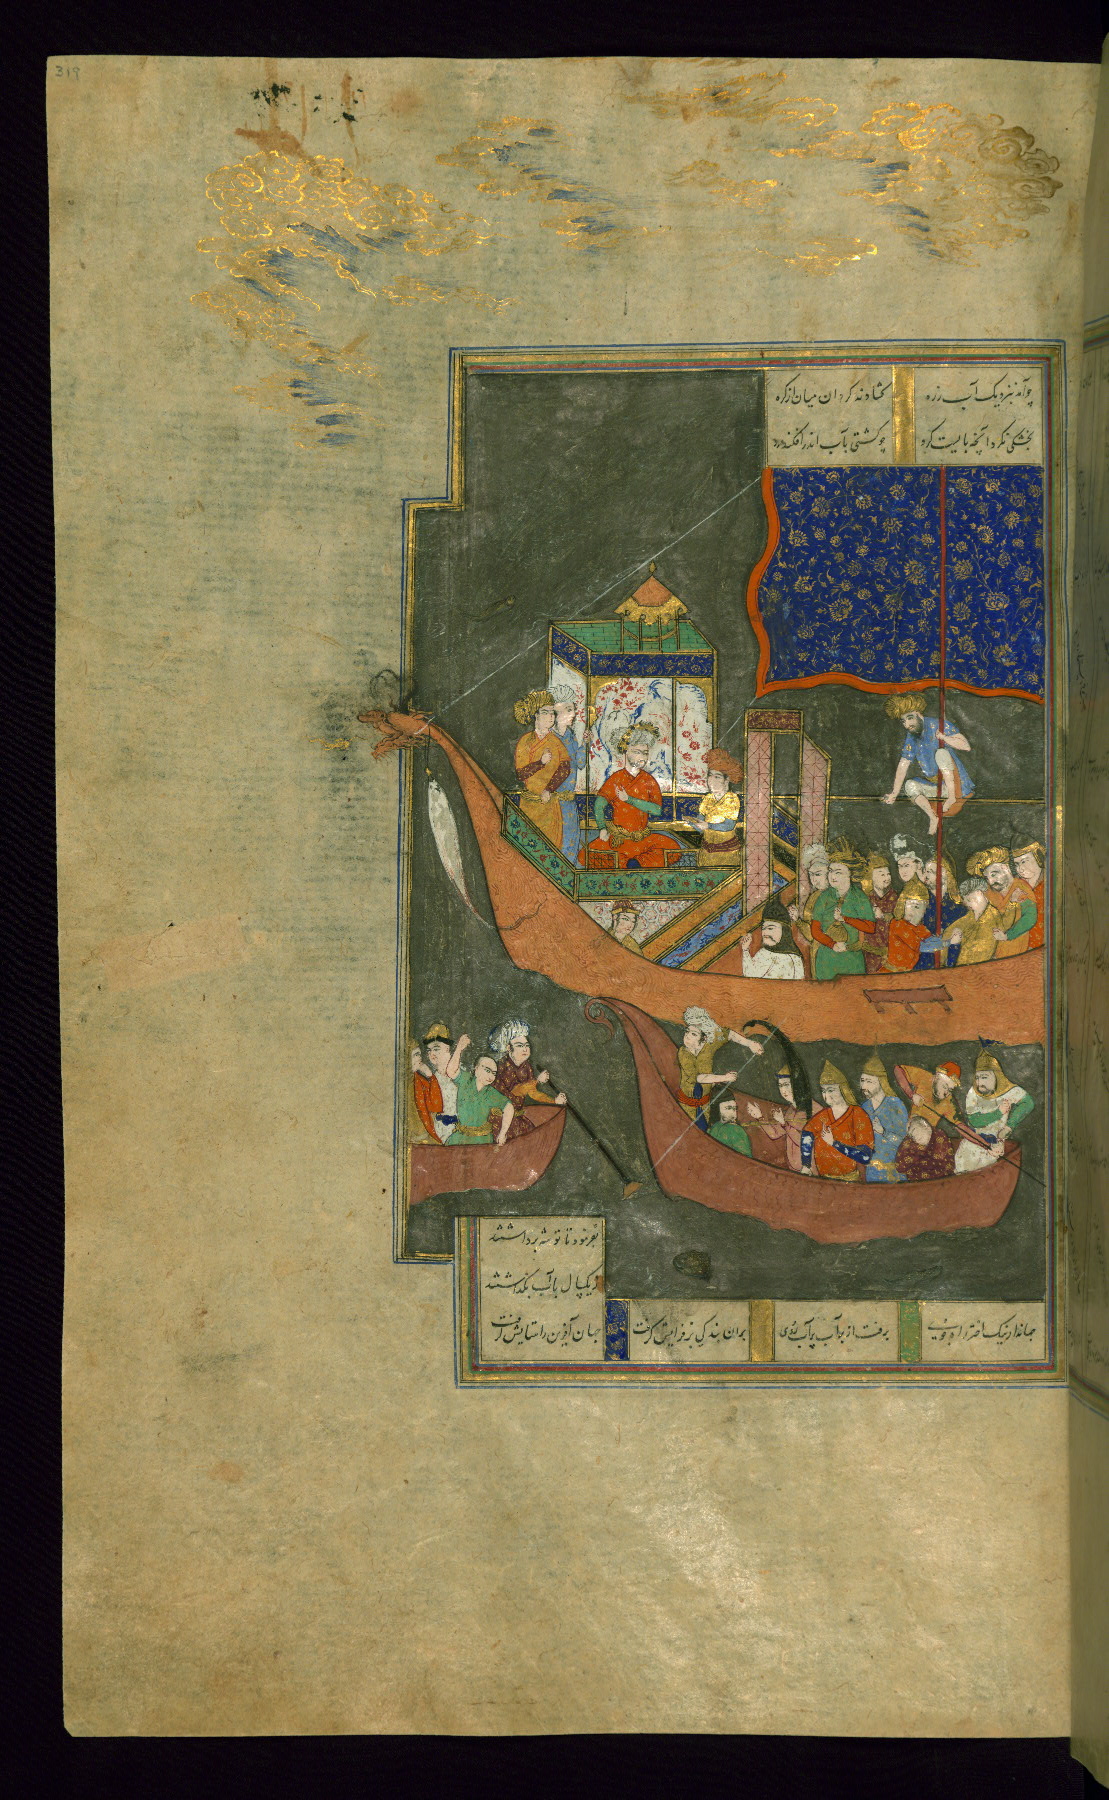 319
چو آمد بنزدیک آب زره
گشادند گردان میان از گره
بخشکی بکرد آنچه بایست کرد
چو کشتی بآب اندر افکند مرد
بفرمود تا توشه برداشتند
ز یکسال با آب بگذاشتند
جهاندار نیک اختر و راه جوی
برفت از بر آب بر آب روی
بران بندگی بر فزایش گرفت
جهان آفرین را ستایش گرفت